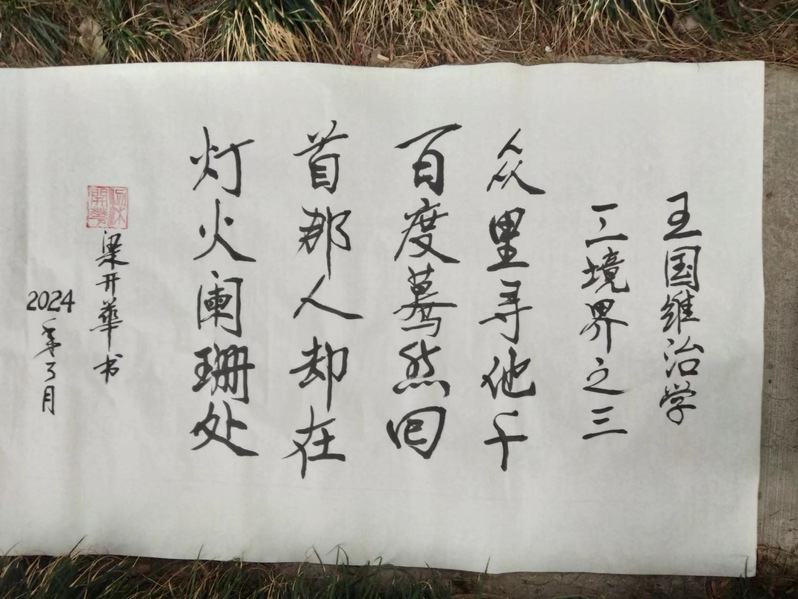 王国维治学
三境界之三
众里寻他千
百度蓦然回
首那人却在
灯火阑珊处
梁开華书
2024年3月